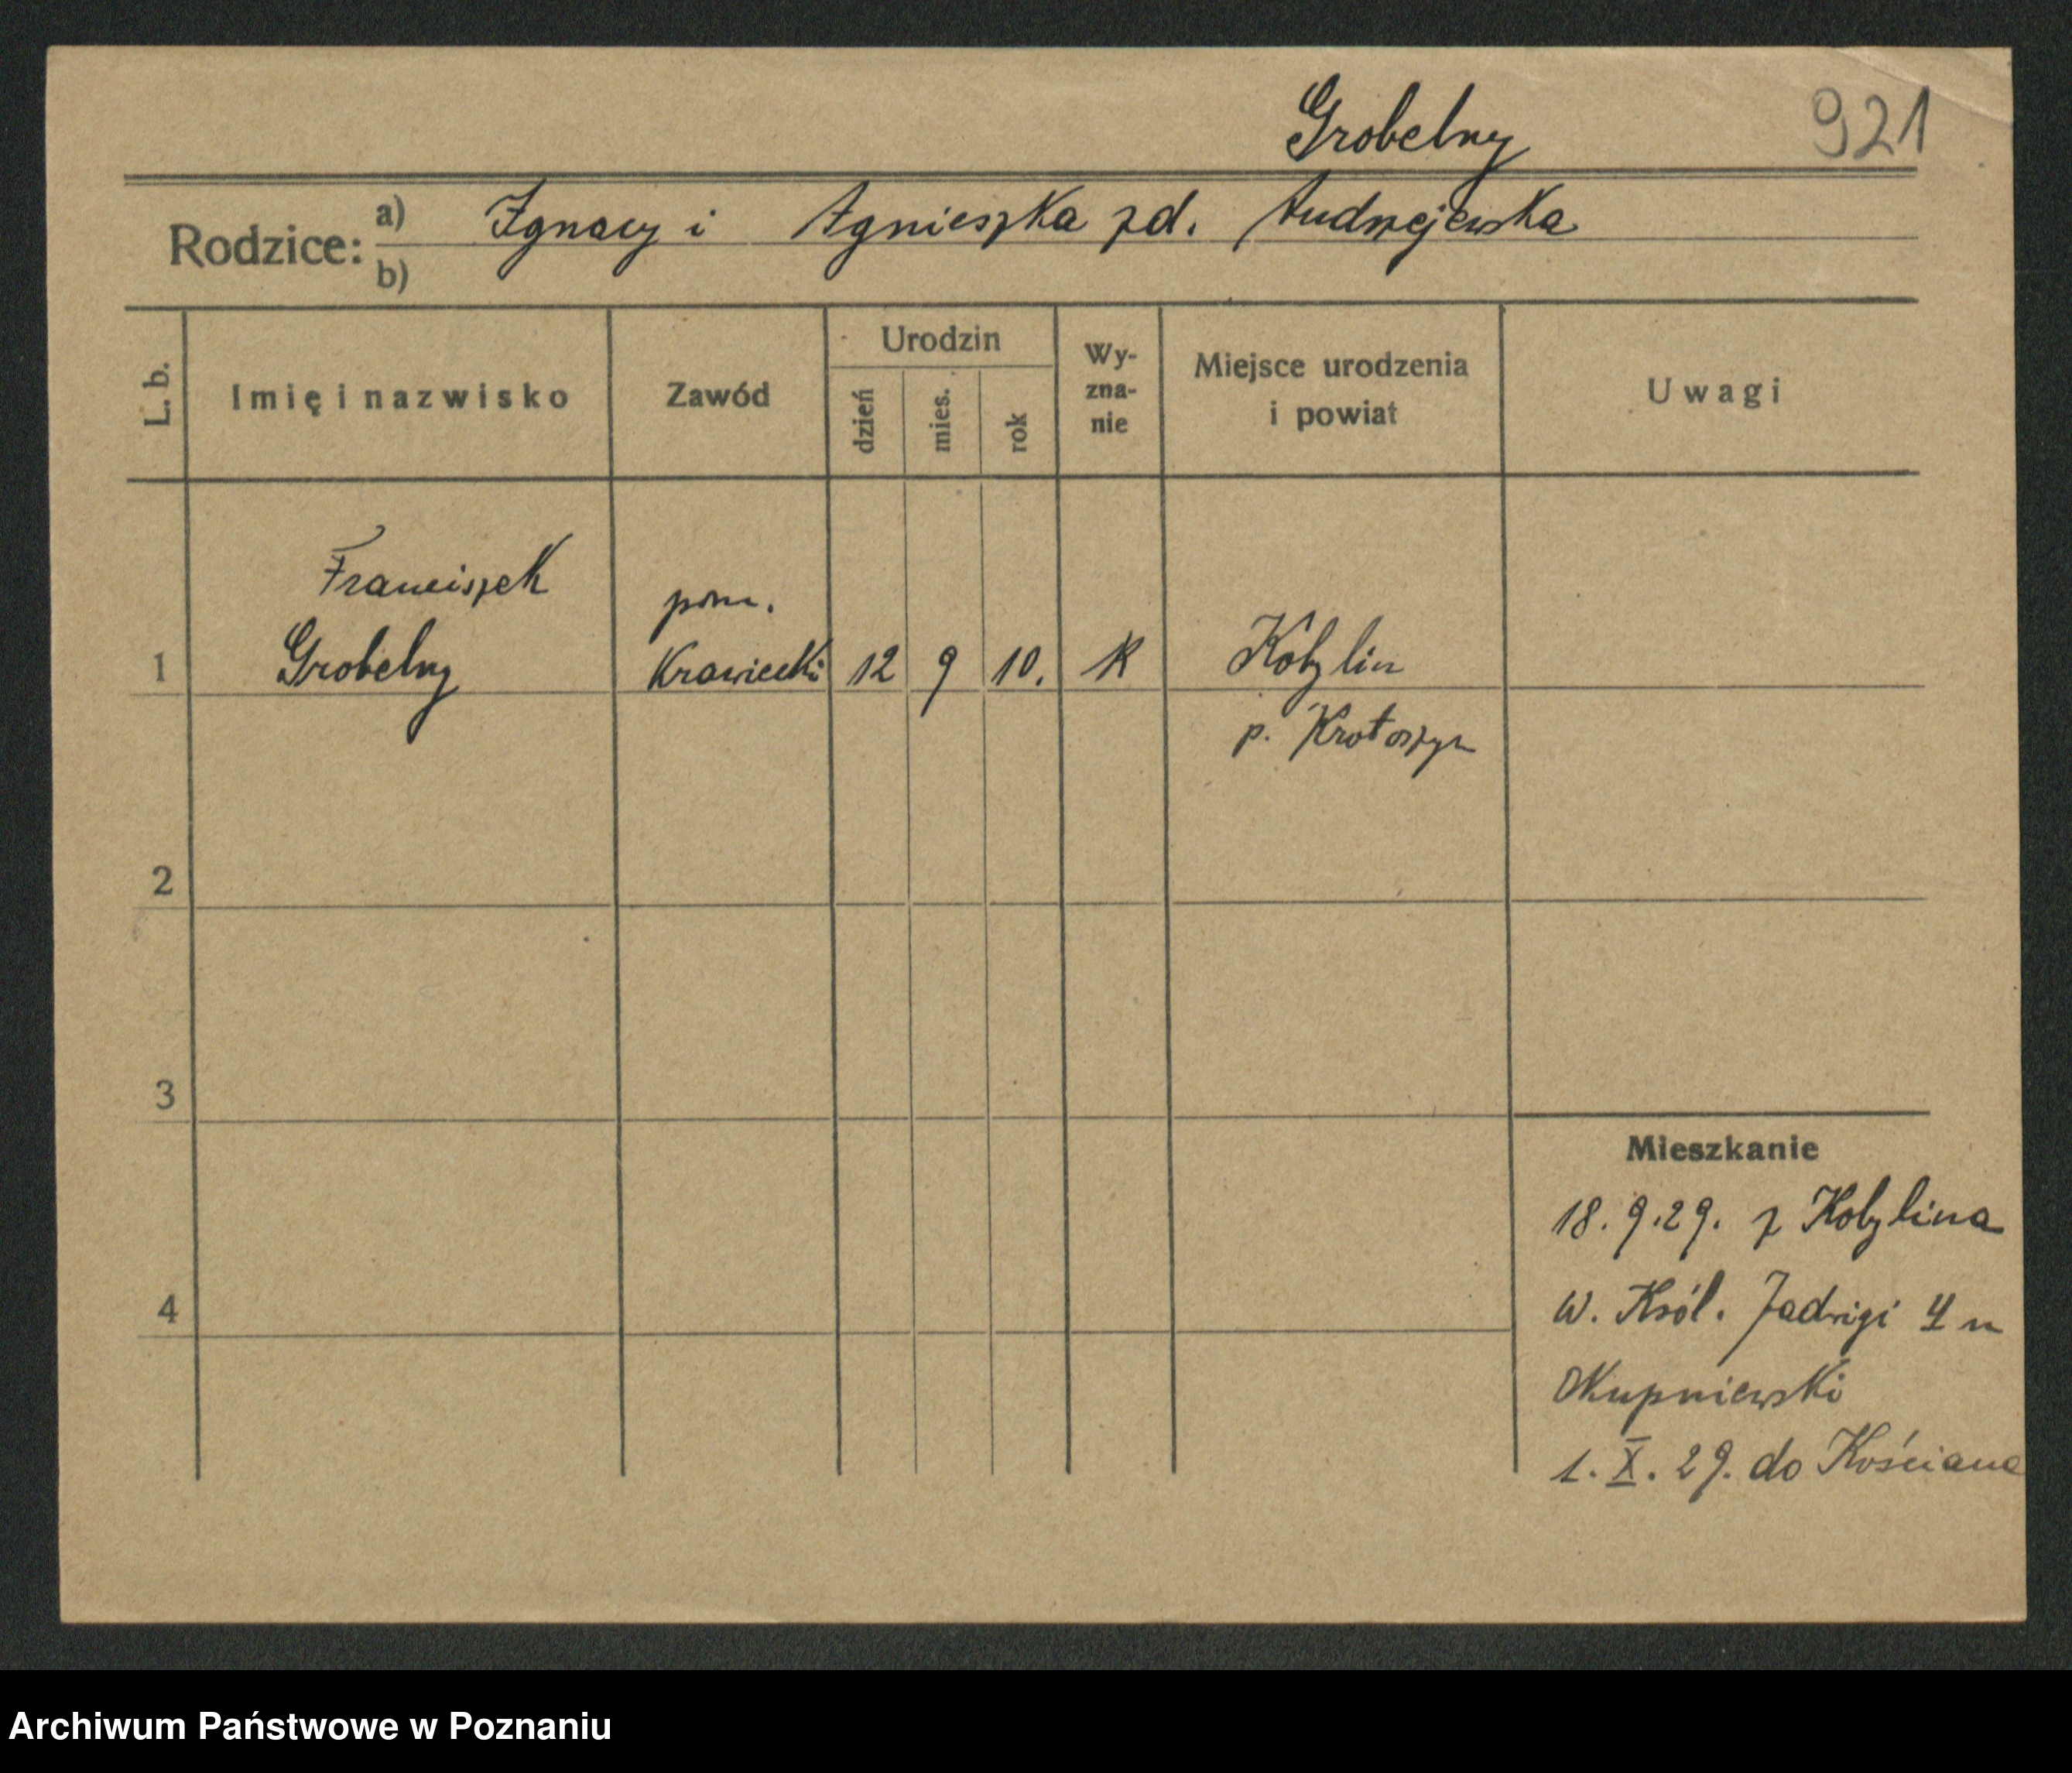 Grobelny
921
Rodzice: a) Ignacy i Agnieszka zd. Andrzejewska
b)
L. b.
Imię i nazwisko
Zawód
Urodzin
dzień
mies.
rok
Wy-
zna-
nie
Miejsce urodzenia
i powiat
Uwagi
Franciszek
pom.
1 Grobelny Krawiecki 12 9 10. K Kobylin
p. Krotoszyn
2
3
4
Mieszkanie
18. 9. 29. z Kobylina
w. Król. Jadwigi 4 u
Skupniewski
1. X. 29. do Kościana
Archiwum Państwowe w Poznaniu